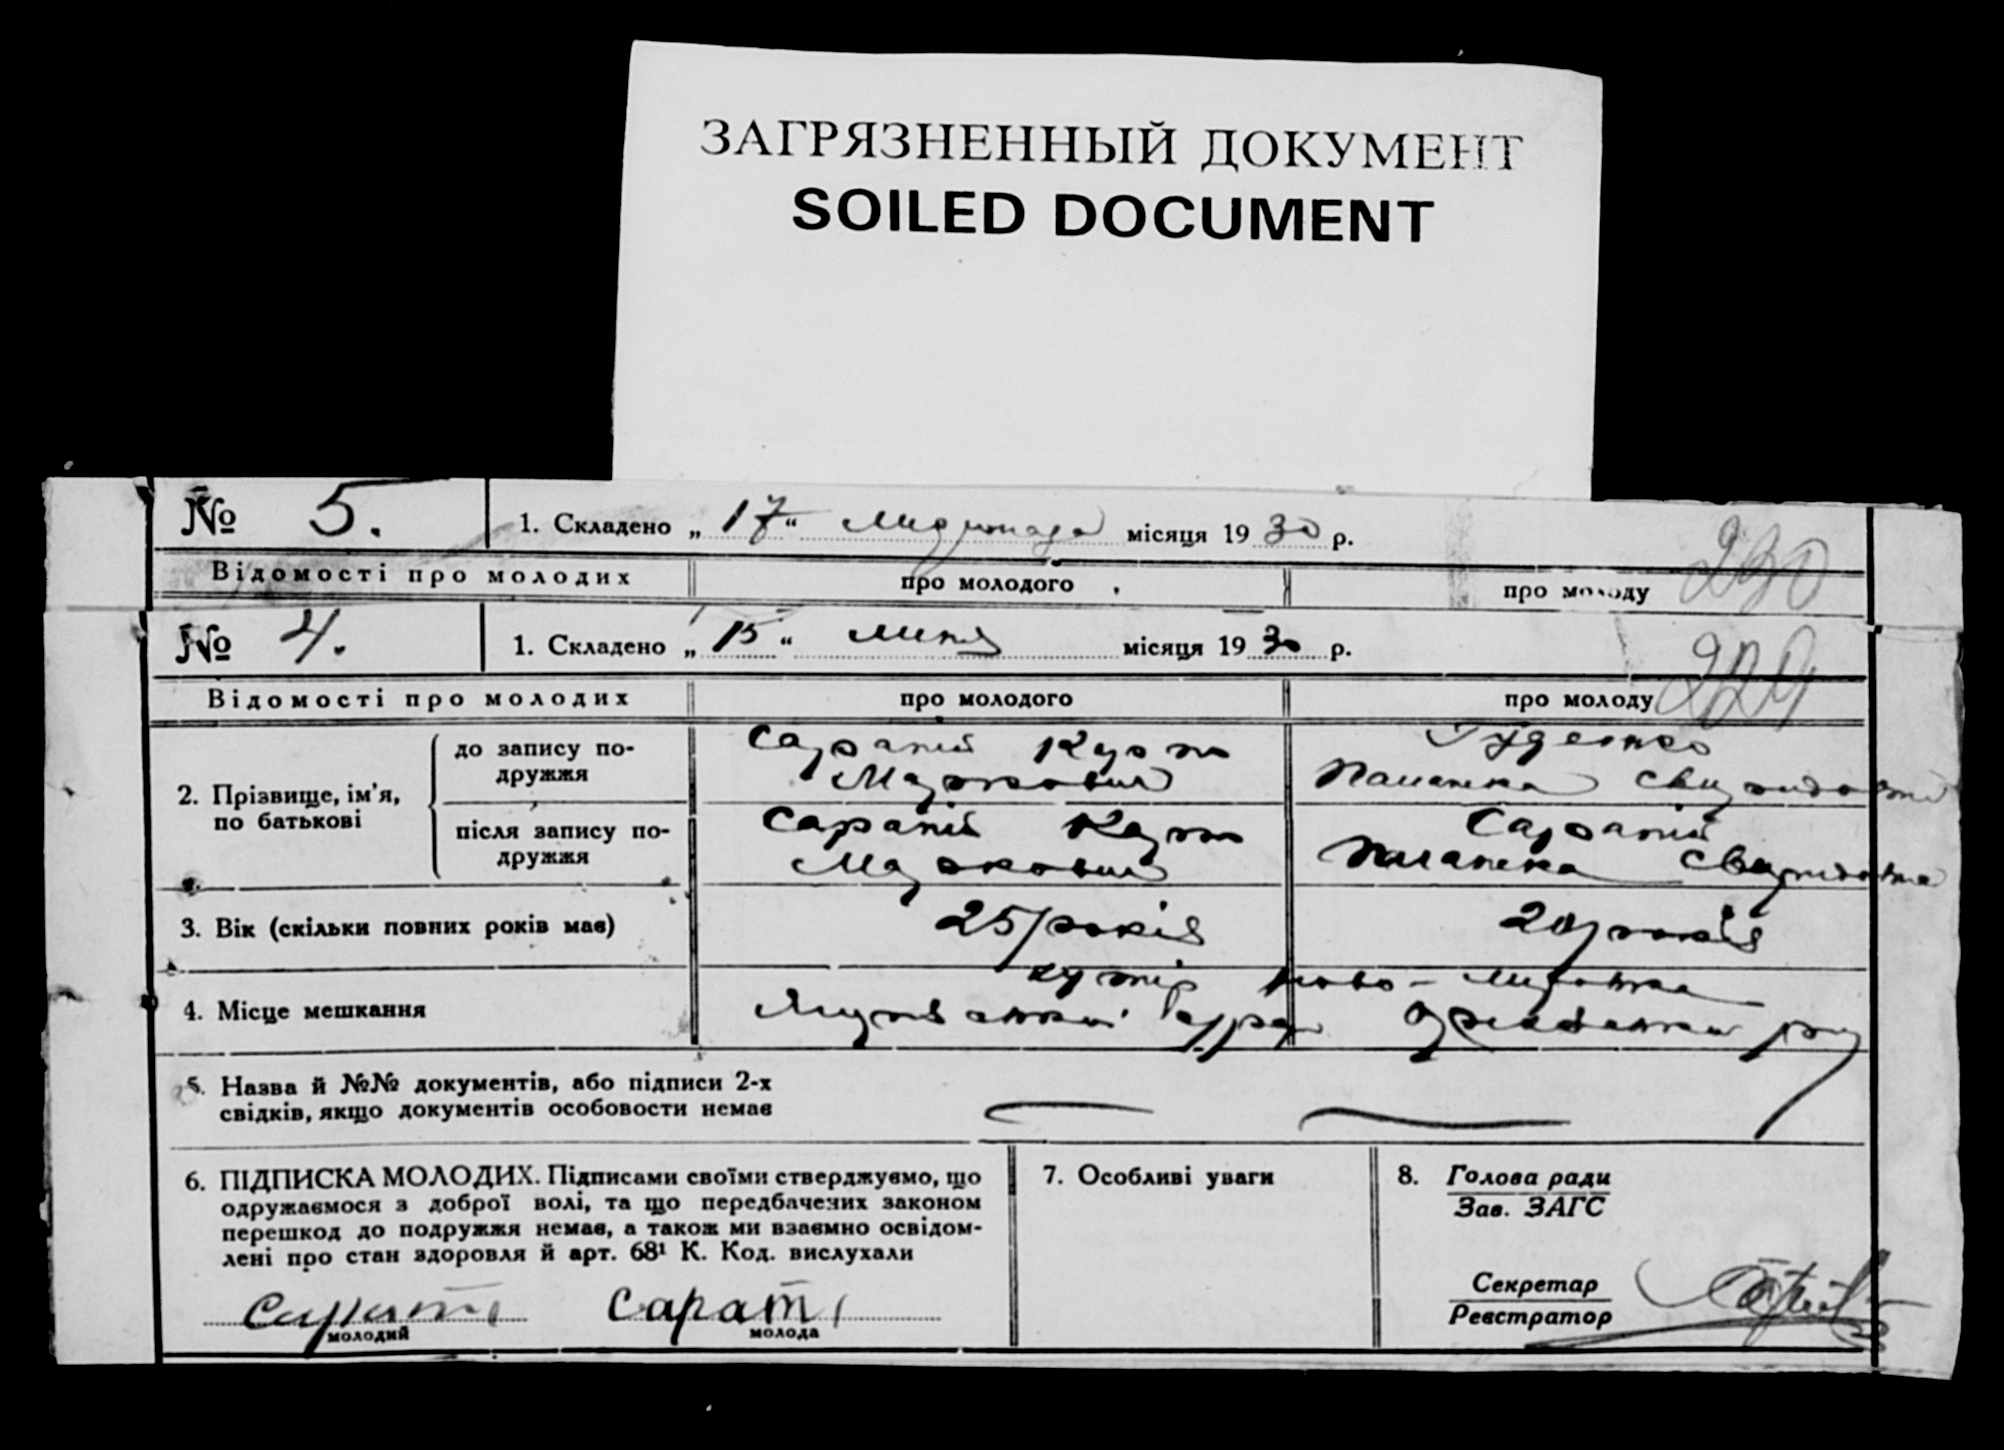 ЗАГРЯЗНЕННЫЙ ДОКУМЕНТ
SOILED DOCUMENT
№ 5. 1. Складено „17“ Листопада місяця 1930 р.
230
Відомості про молодих про молодого про молоду
№ 4. 1. Складено „15“ липня місяця 1930 р.
229
Відомості про молодих про молодого про молоду
2. Прізвище, ім'я, по батькові
до запису подружжя
Сарапій
Маркович
Гуденко
після запису по-
дружжя
Сарапій
Маркович
Сарапій
3. Вік (скільки повних років має) 25 років 20 років
хутір Ново-
4. Місце мешкання
5. Назва й №№ документів, або підписи 2-х
свідків, якщо документів особовости немає
6. ПІДПИСКА МОЛОДИХ. Підписами своїми стверджуємо, що
одружаємося з доброї волі, та що передбачених законом
перешкод до подружжя немає, а також ми взаємно освідом-
лені про стан здоровля й арт. 68¹ К. Код. вислухали
7. Особливі уваги
8. Голова ради
Зав. ЗАГС
Секретар
Реєстратор
Сарапі Сарапі
молодий молода